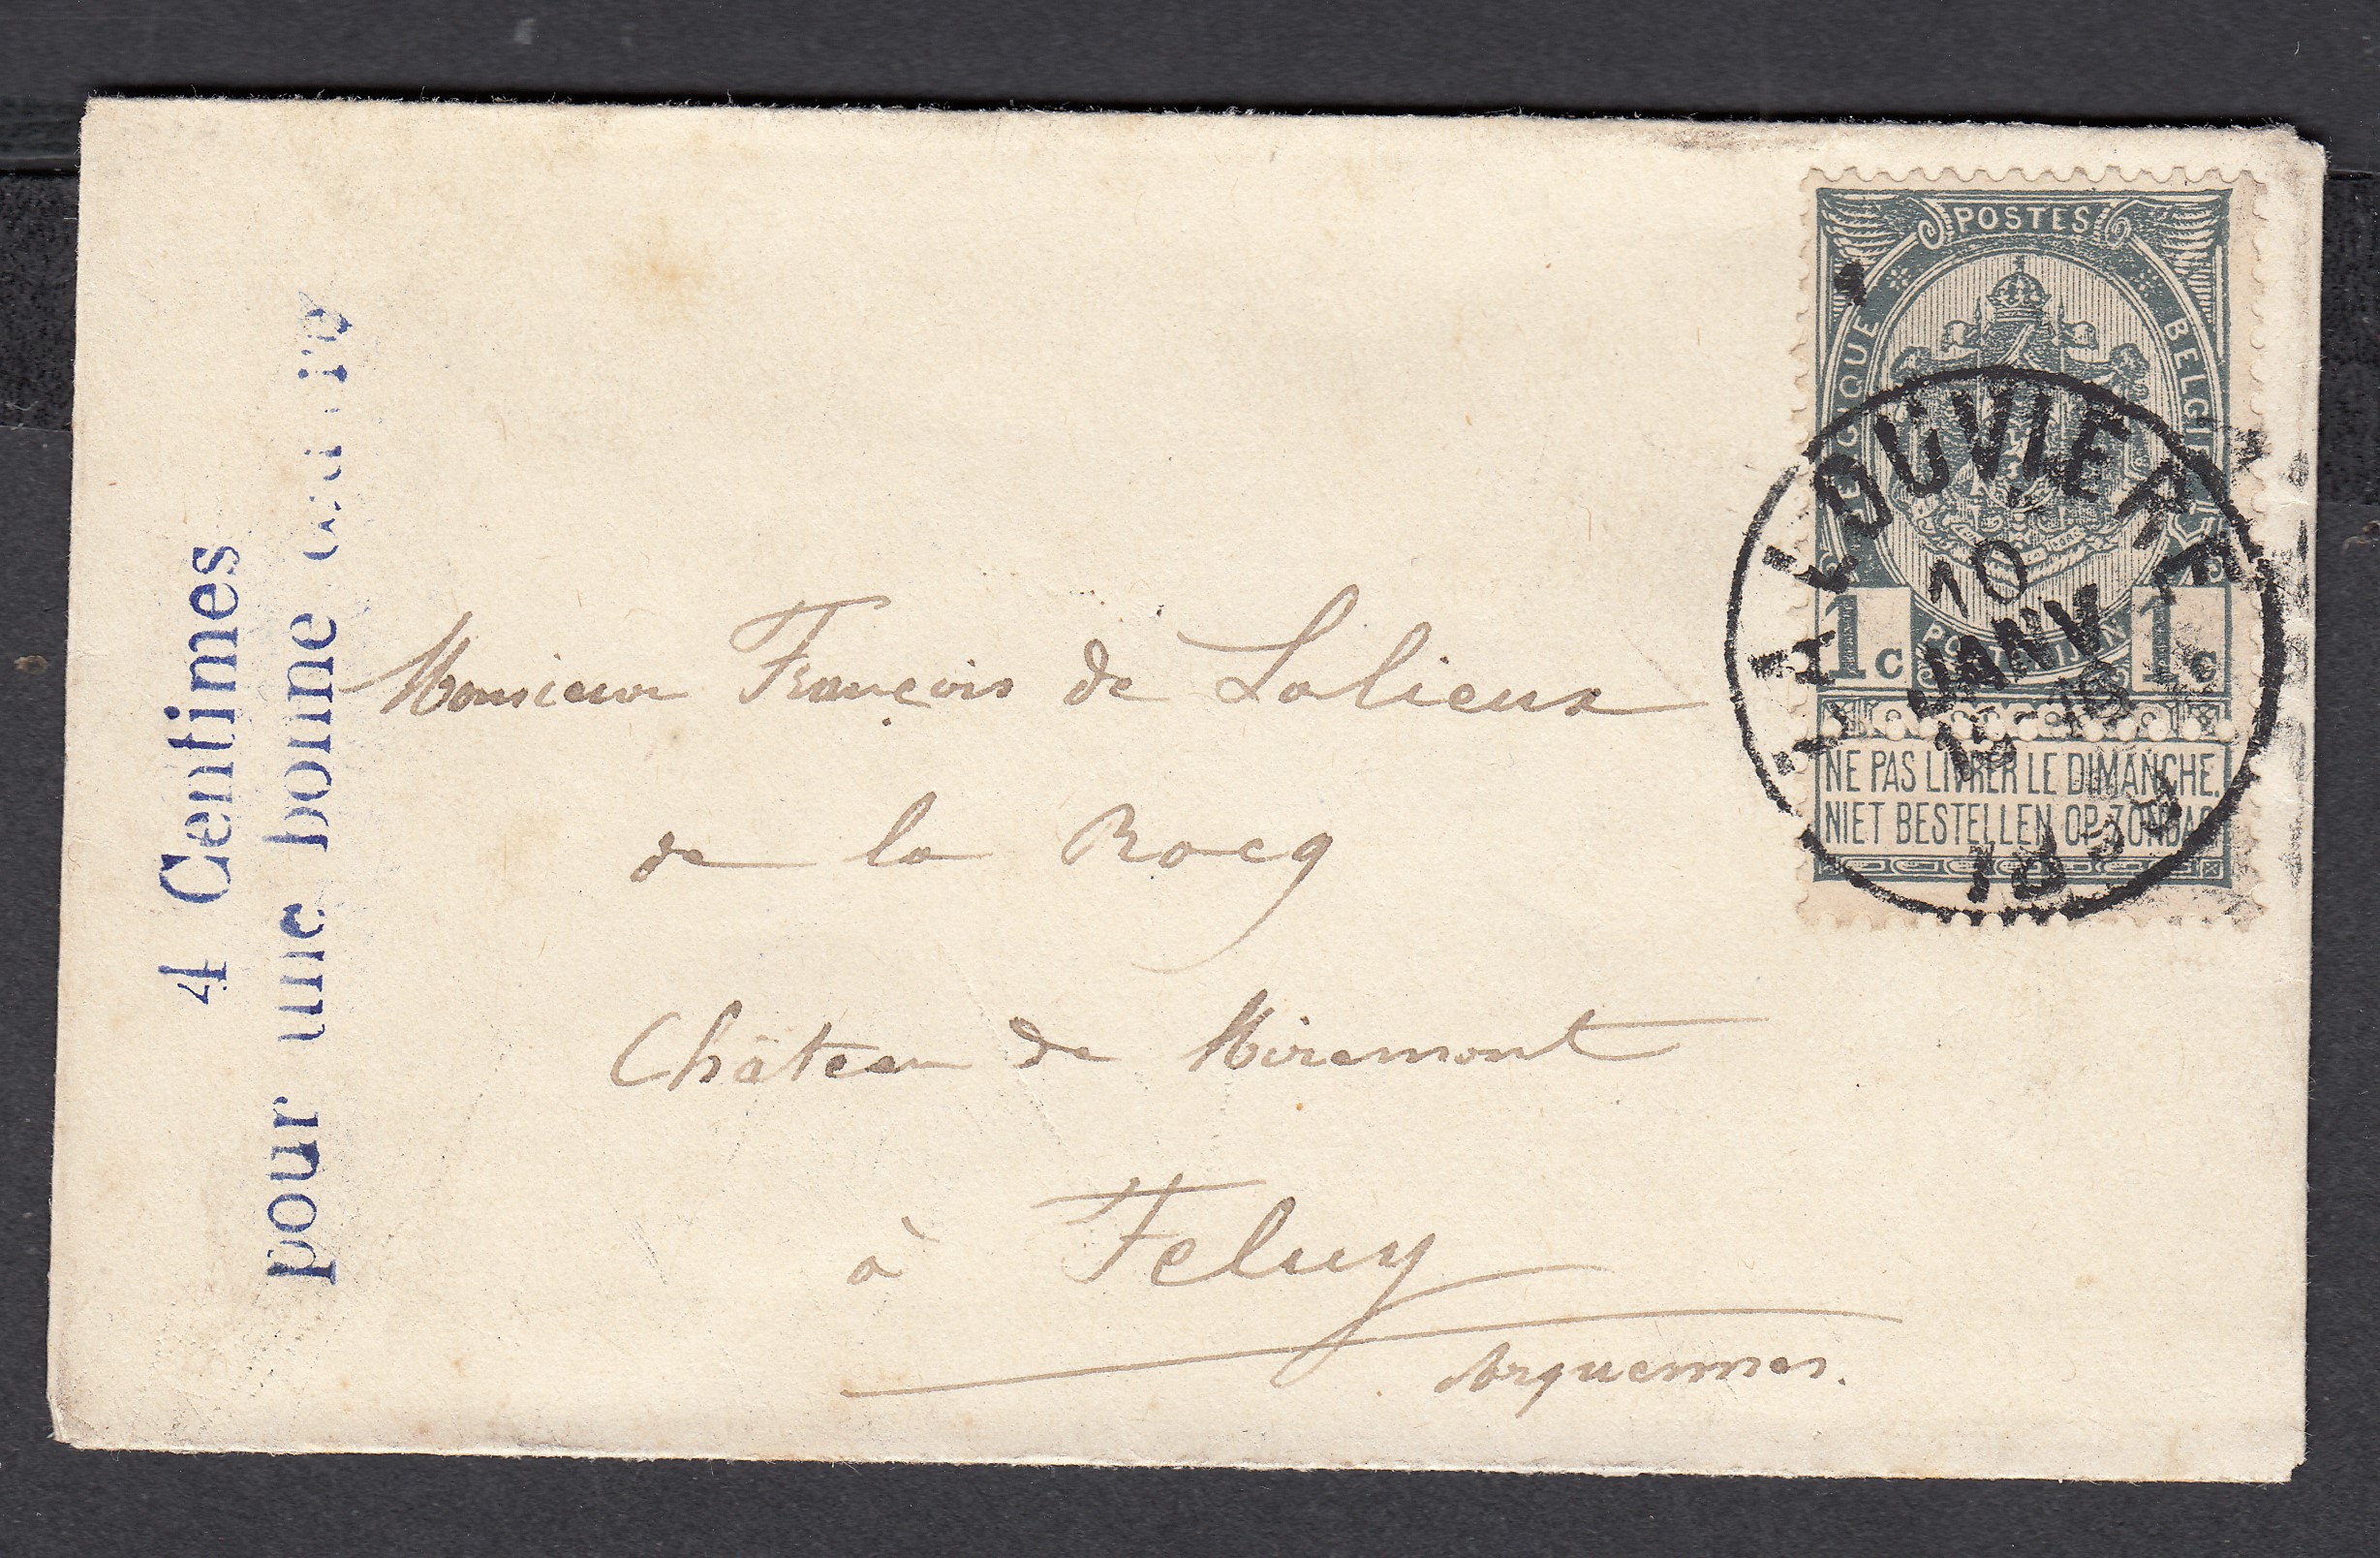 4 Centimes
pour une bonne œuvre
POSTES
BELGIQUE
BELGIE
POSTERIJEN
1c 1c
NE PAS LIVRER LE DIMANCHE.
NIET BESTELLEN OP ZONDAG
LA LOUVIERE
10
JANV
Monsieur François de Lalieux
de la Rocq
Château de Miremont
à Feluy
Arquennes.